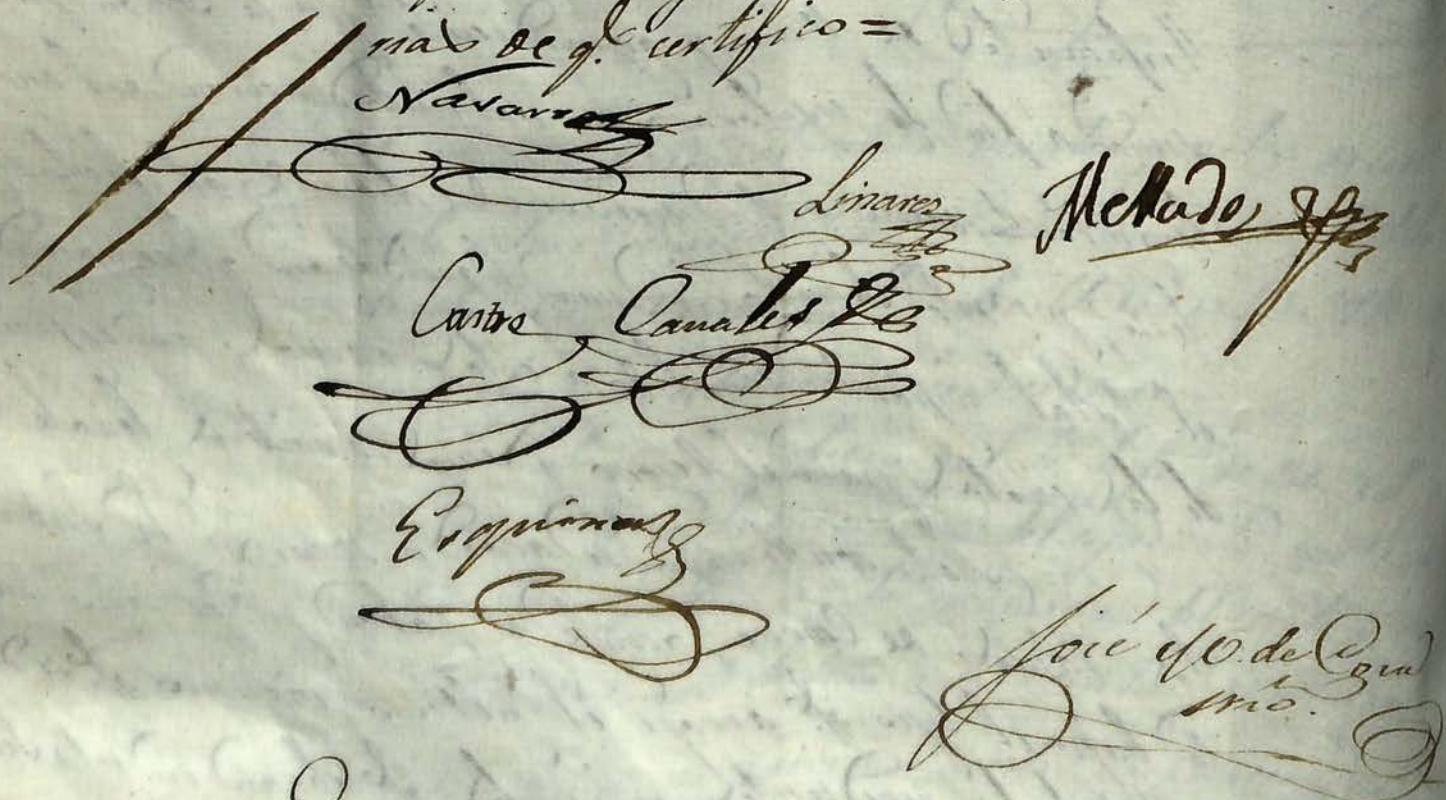 de q.e certifico =
Navarro
Linares
Mellado
Castro Canales
Esquinas
José de
srio.